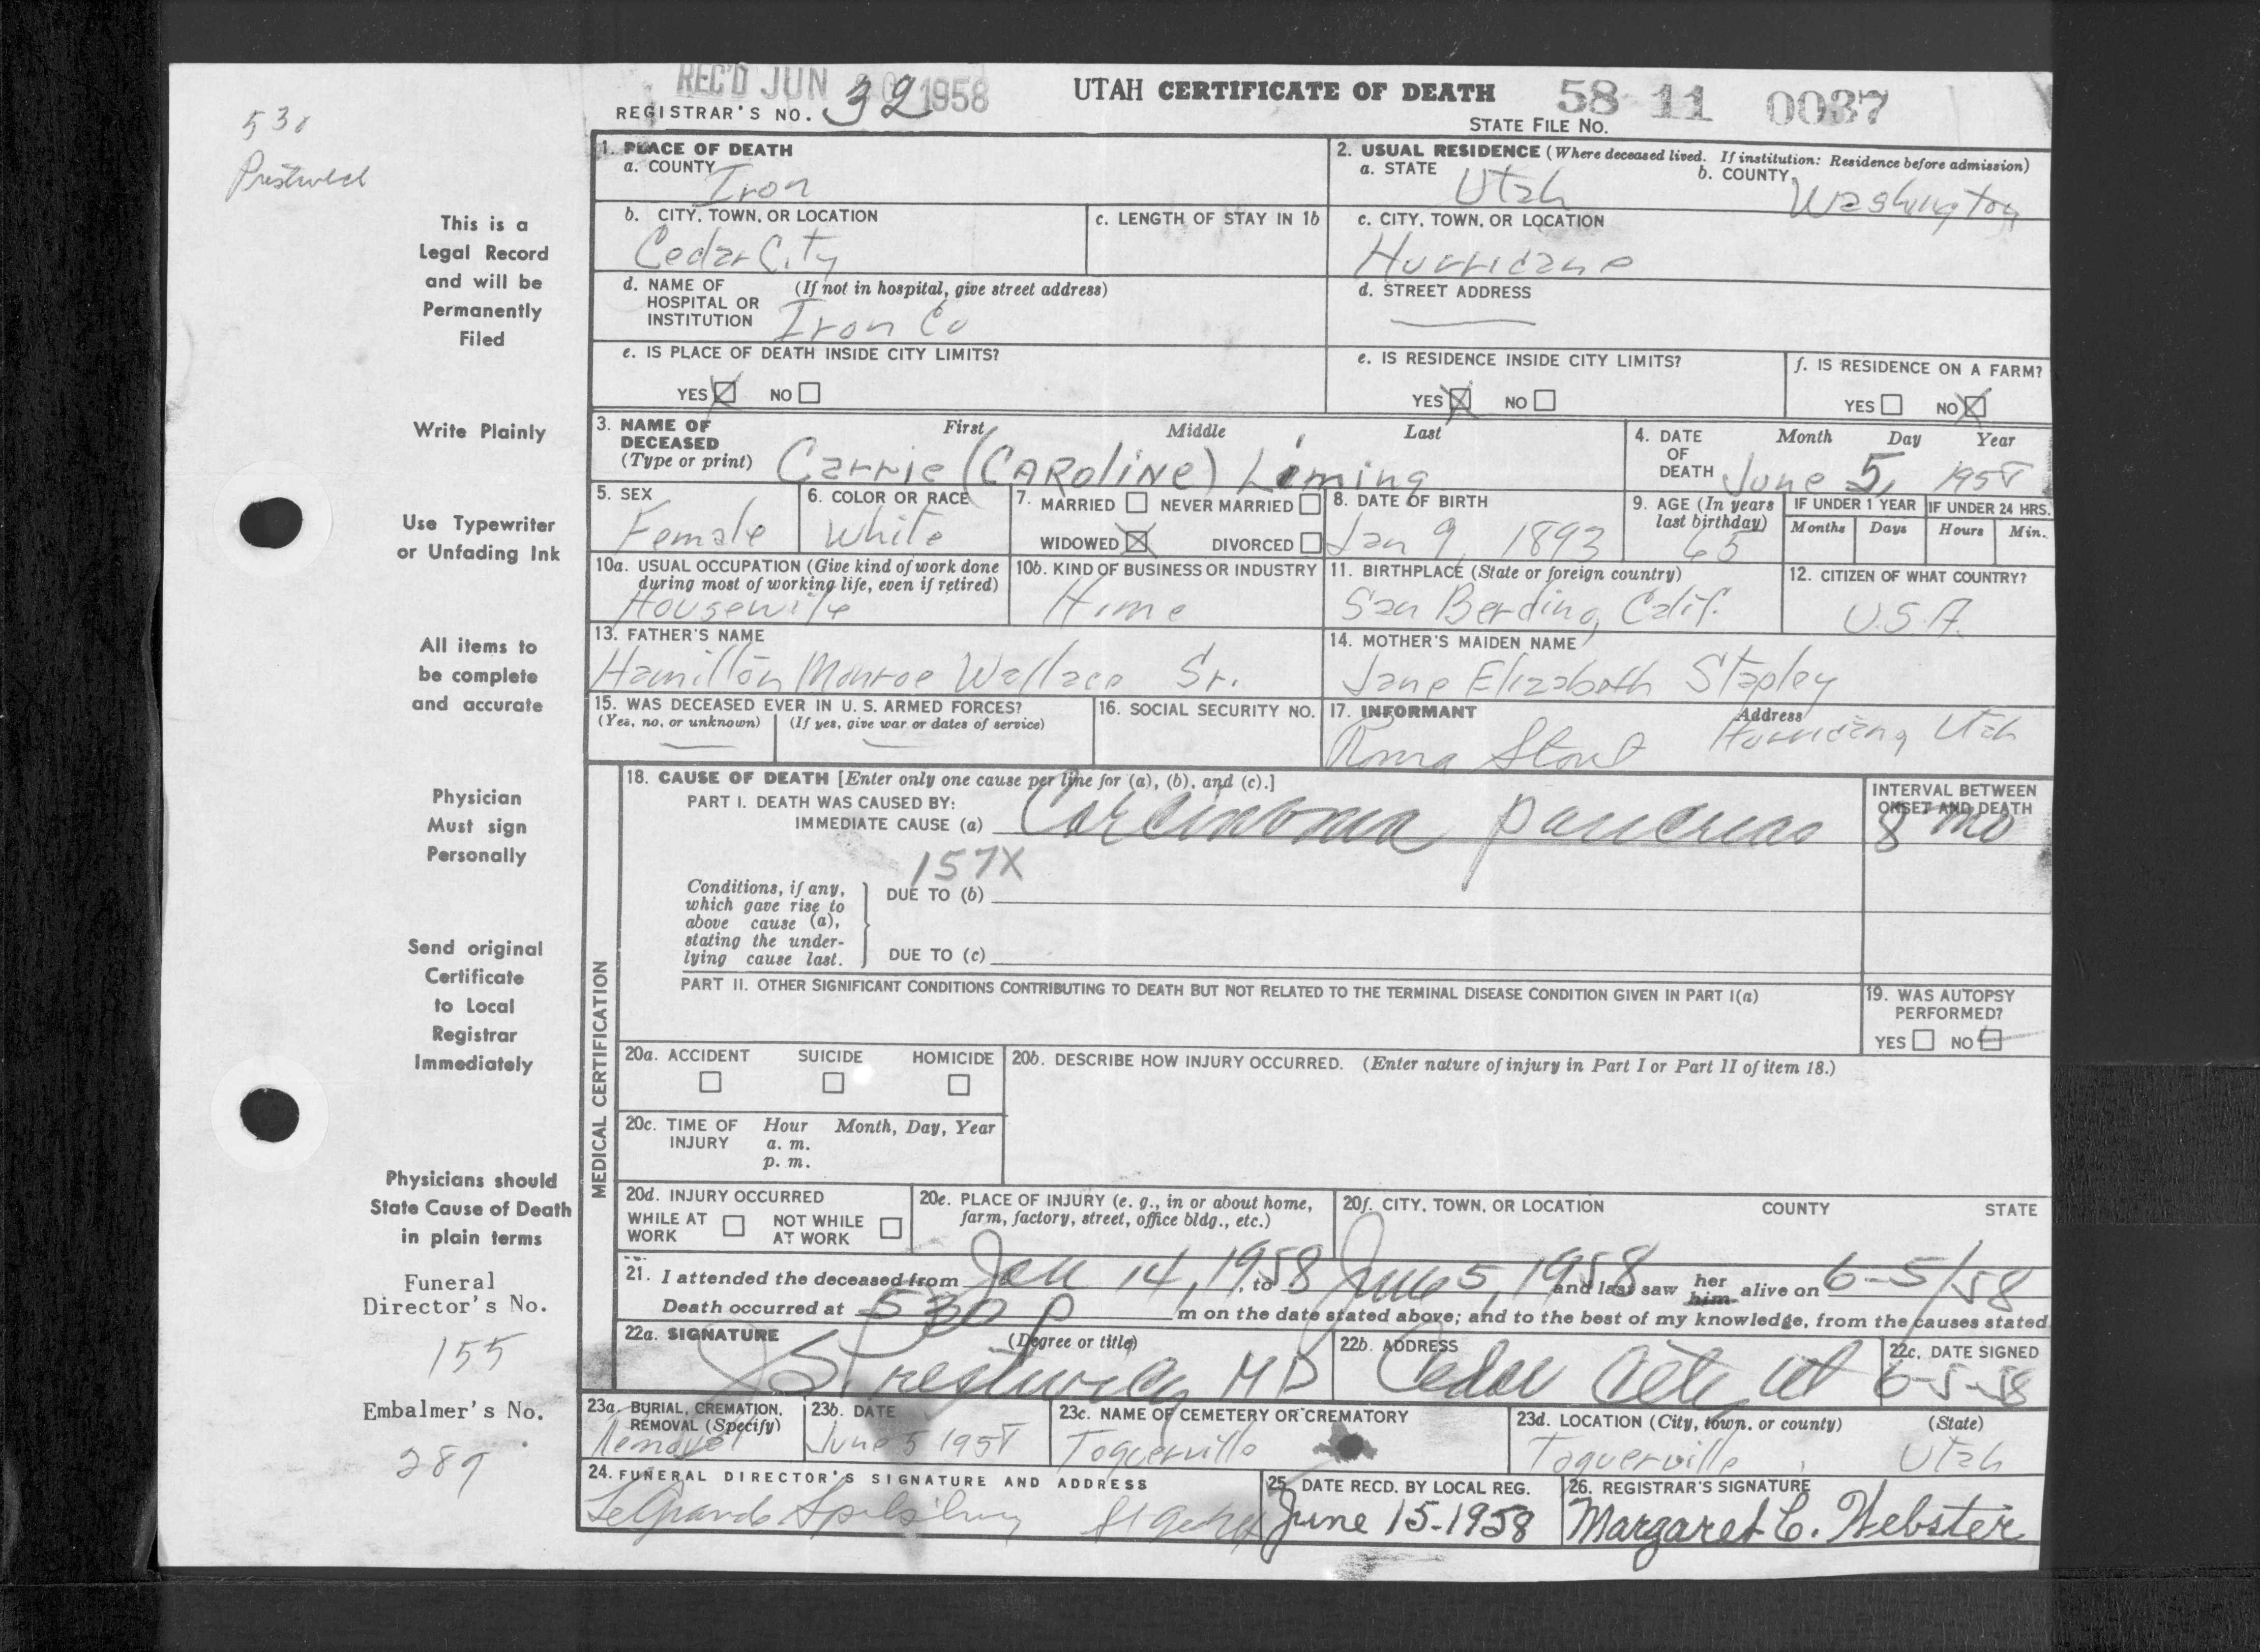 REC'D JUN 20 1958
UTAH CERTIFICATE OF DEATH
58 11 0037
REGISTRAR'S NO. 32
STATE FILE NO.
530
Prestwich
This is a
Legal Record
and will be
Permanently
Filed
Write Plainly
Use Typewriter
or Unfading Ink
All items to
be complete
and accurate
Physician
Must sign
Personally
Send original
Certificate
to Local
Registrar
Immediately
Physicians should
State Cause of Death
in plain terms
Funeral
Director's No.
155
Embalmer's No.
289
1. PLACE OF DEATH
a. COUNTY Iron
2. USUAL RESIDENCE (Where deceased lived. If institution: Residence before admission)
a. STATE Utah b. COUNTY Washington
b. CITY, TOWN, OR LOCATION Cedar City
c. LENGTH OF STAY IN 1b
c. CITY, TOWN, OR LOCATION Hurricane
d. NAME OF HOSPITAL OR INSTITUTION (If not in hospital, give street address) Iron Co
d. STREET ADDRESS
e. IS PLACE OF DEATH INSIDE CITY LIMITS?
YES NO
e. IS RESIDENCE INSIDE CITY LIMITS?
YES NO
f. IS RESIDENCE ON A FARM?
YES NO
3. NAME OF DECEASED (Type or print) First Middle Last
Carrie (CAROLINE) Leming
4. DATE OF DEATH Month Day Year
June 5, 1958
5. SEX Female
6. COLOR OR RACE White
7. MARRIED NEVER MARRIED
WIDOWED DIVORCED
8. DATE OF BIRTH Jan 9, 1893
9. AGE (In years last birthday) 65
IF UNDER 1 YEAR Months Days
IF UNDER 24 HRS. Hours Min.
10a. USUAL OCCUPATION (Give kind of work done during most of working life, even if retired) Housewife
10b. KIND OF BUSINESS OR INDUSTRY Home
11. BIRTHPLACE (State or foreign country) San Berdino, Calif.
12. CITIZEN OF WHAT COUNTRY? U.S.A.
13. FATHER'S NAME Hamilton Monroe Wallace Sr.
14. MOTHER'S MAIDEN NAME Jane Elizabeth Stapley
15. WAS DECEASED EVER IN U. S. ARMED FORCES?
(Yes, no, or unknown) (If yes, give war or dates of service)
16. SOCIAL SECURITY NO.
17. INFORMANT Address
Roma Stout Utah
MEDICAL CERTIFICATION
18. CAUSE OF DEATH [Enter only one cause per line for (a), (b), and (c).]
PART I. DEATH WAS CAUSED BY:
IMMEDIATE CAUSE (a) Carcinoma pancreas
INTERVAL BETWEEN ONSET AND DEATH
8 mo
157X
Conditions, if any, which gave rise to above cause (a), stating the underlying cause last.
DUE TO (b)
DUE TO (c)
PART II. OTHER SIGNIFICANT CONDITIONS CONTRIBUTING TO DEATH BUT NOT RELATED TO THE TERMINAL DISEASE CONDITION GIVEN IN PART I(a)
19. WAS AUTOPSY PERFORMED?
YES NO
20a. ACCIDENT SUICIDE HOMICIDE
20b. DESCRIBE HOW INJURY OCCURRED. (Enter nature of injury in Part I or Part II of item 18.)
20c. TIME OF INJURY Hour Month, Day, Year
a. m.
p. m.
20d. INJURY OCCURRED
WHILE AT WORK NOT WHILE AT WORK
20e. PLACE OF INJURY (e. g., in or about home, farm, factory, street, office bldg., etc.)
20f. CITY, TOWN, OR LOCATION COUNTY STATE
21. I attended the deceased from Jan 14, 1958, to June 5, 1958 and last saw her him alive on 6-5/58
Death occurred at 530 P m on the date stated above; and to the best of my knowledge, from the causes stated
22a. SIGNATURE (Degree or title)
Prestwich MD
22b. ADDRESS Cedar City Ut
22c. DATE SIGNED 6-5-58
23a. BURIAL, CREMATION, REMOVAL (Specify) Removal
23b. DATE June 5 1958
23c. NAME OF CEMETERY OR CREMATORY Toquerville
23d. LOCATION (City, town, or county) (State)
Toquerville, Utah
24. FUNERAL DIRECTOR'S SIGNATURE AND ADDRESS
LeGrande Spilsbury
25. DATE RECD. BY LOCAL REG. June 15-1958
26. REGISTRAR'S SIGNATURE Margaret C. Webster